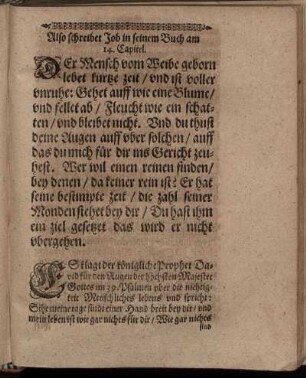 Also schreibet Job in seinem Buch am
14. Capitel.
DEr Mensch vom Weibe geborn
lebet kurtze zeit / vnd ist voller
vnruhe: Gehet auff wie eine Blume /
vnd fellet ab / Fleucht wie ein schat-
ten / vnd bleibet nicht. Vnd du thust
deine Augen auff vber solchen / auff
das du mich für dir ins Gericht zeu-
hest. Wer wil einen reinen finden /
bey denen / da keiner rein ist? Er hat
seine bestimpte zeit / die zahl seiner
Monden stehet bey dir / Du hast ihm
ein ziel gesetzet das wird er nicht
vbergehen.
ES klagt der königliche Prophet Da-
vid für den Augen der höchsten Majestet
Gottes im 39. Psalmen vber die nichtig-
keit Menschliches lebens vnd spricht:
Sihe meine tage sindt einer Hand breit bey dir / vnd
mein leben ist wie gar nichts für dir / Wie gar nichts
sind